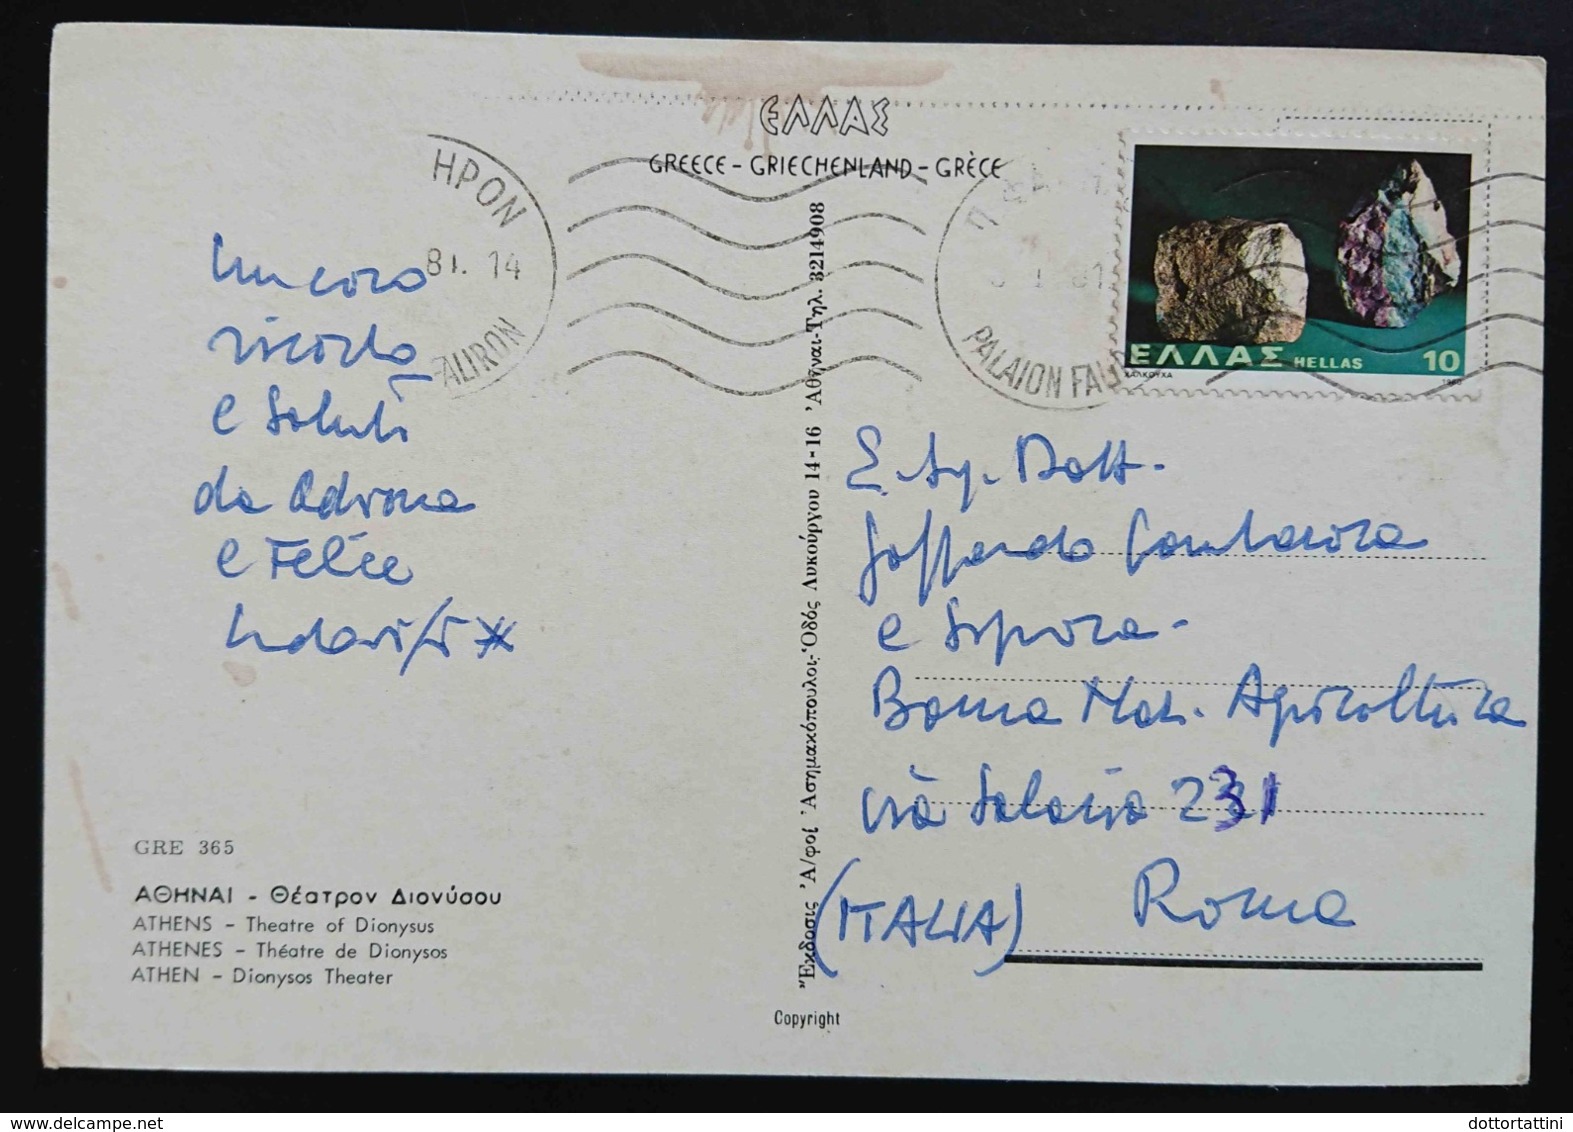 ΕΛΛΑΣ
GREECE - GRIECHENLAND - GRÈCE
ΗΡΟΝ
81. 14
ALIRON
PALAION FAL
81
ΕΛΛΑΣ HELLAS 10
ΧΑΛΚΟΥΧΑ 1980
Un caro
ricordo
e saluti
da Adriana
e Felice
E. Sig. Dott.
Goffredo
e Signora -
Banca Naz. Agricoltura
via Salaria 231
Roma
(ITALIA)
"Εκδοσις 'Α/φοί 'Ασημακόπουλοι-'Οδός Λυκούργου 14-16 'Αθῆναι-Τηλ. 3214908
GRE 365
ΑΘΗΝΑΙ - Θέατρον Διονύσου
ATHENS - Theatre of Dionysus
ATHENES - Théatre de Dionysos
ATHEN - Dionysos Theater
Copyright
dottortattini